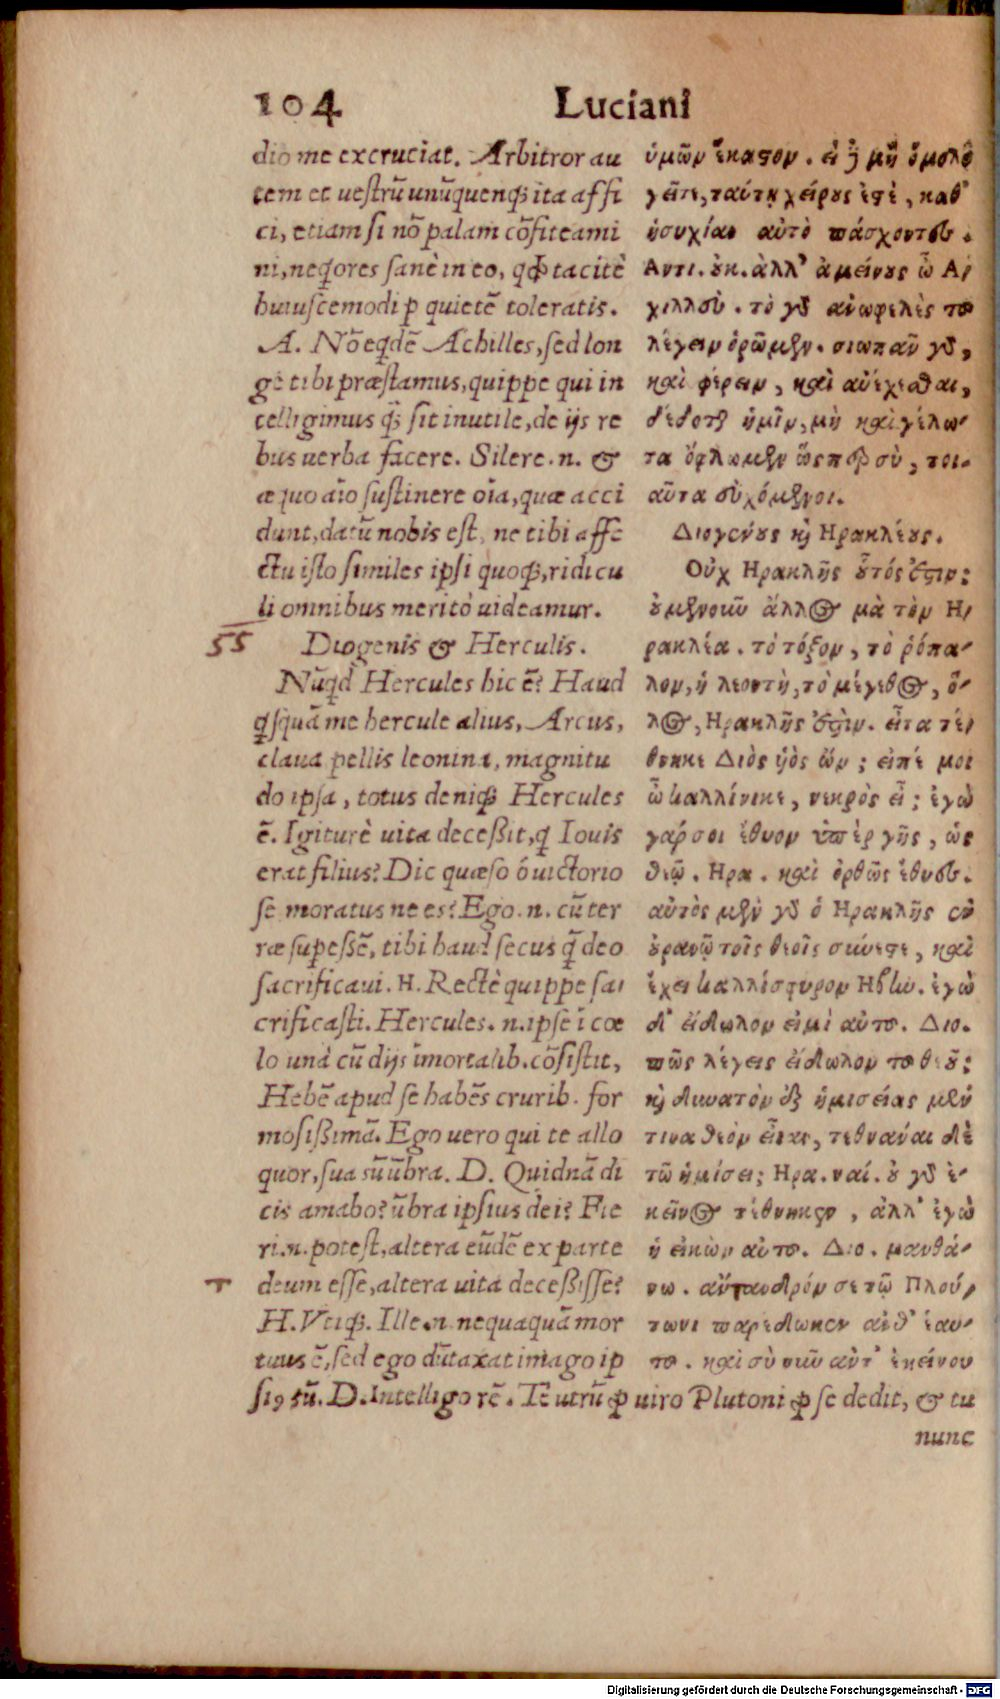 104 Luciani
dio me excruciat. Arbitror au
tem et uestrũ unũquenq; ita affi
ci, etiam si nõ palam cõfiteami
ni, neq̃ores sanè in eo, qđ tacitè
huiuscemodi p quietẽ toleratis.
A. Nõ eqdẽ Achilles, sed lon
gè tibi præstamus, quippe qui in
telligimus q̃ sit inutile, de ijs re
bus uerba facere. Silere .n. &
æquo aĩo sustinere oĩa, quæ acci
dunt, datũ nobis est, ne tibi affe
ctu isto similes ipsi quoq;, ridicu
li omnibus meritò uideamur.
55 Diogenis & Herculis.
Nũqd Hercules hic ẽ? Haud
q̃squã me hercule alius, Arcus,
claua pellis leonina, magnitu
do ipsa, totus deniq; Hercules
ẽ. Igitur è uita deceßit, q̃ Iouis
erat filius? Dic quæso ó uictorio
se moratus ne es? Ego .n. cũ ter
ræ supeßẽ, tibi haud secus q̃ deo
sacrificaui. H. Rectè quippe sa-
crificasti. Hercules .n. ipse ĩ cœ
lo unà cũ dijs ĩmortalib. cõsistit,
Hebẽ apud se habẽs crurib. for
mosißimã. Ego uero qui te allo
quor, sua sũ ũbra. D. Quidnã di
cis amabo? ũbra ipsius dei? Fie
ri .n. potest, altera eũdẽ ex parte
deum esse, altera uita deceßisse?
H. Vtiq;. Ille .n. nequaquã mor
tuus ẽ, sed ego dũtaxat imago ip
si9 sũ. D. Intelligo rẽ. Te utrũ p uiro Plutoni p se dedit, & tu
nunc
ὑμῶν ἕκαστον. εἰ δὲ μὴ ὁμολο
γεῖτε, ταύτῃ χείρους ἐστὲ, καθ'
ἡσυχίαν αὐτὸ πάσχοντες.
Αντι. οὐκ. ἀλλ' ἀμείνους ὦ Αχ
χιλλεῦ. τὸ γὸ ἀνωφελὲς τοῦ
λέγειν ὁρῶμεν. σιωπᾶν γὸ,
καὶ φέρειν, καὶ ἀνέχεσθαι,
δέδοται ἡμῖν, μὴ καὶ γέλω-
τα ὄφλωμεν ὥσπερ σὺ, τοι-
αῦτα εὐχόμενοι.
Διογένους κὶ Ηρακλέους.
Οὐχ Ηρακλῆς οὗτός ἐστιν;
οὐμενοιῦ ἄλλος μὰ τὸν Η-
ρακλέα. τὸ τόξον, τὸ ῥόπα-
λον, ἡ λεοντὴ, τὸ μέγεθος, ὅ-
λος, Ηρακλῆς ἐστὶν. εἶτα τέ-
θνηκε Διὸς ὑὸς ὤν; εἰπέ μοι
ὦ καλλίνικε, νεκρὸς εἶ; ἐγὼ
γάρ σοι ἔθυον ὑπὲρ γῆς, ὡς
θεῷ. Ηρα. καὶ ὀρθῶς ἔθυες.
αὐτὸς μὲν γὸ ὁ Ηρακλῆς ἐν
οὐρανῷ τοῖς θεοῖς σύνεστι, καὶ
ἔχει καλλίσφυρον Ηβlω. ἐγὼ
δ' εἴδωλον εἰμὶ αὐτοῦ. Διο.
πῶς λέγεις εἴδωλον τοῦ θεοῦ;
κὶ δυνατὸν ἐξ ἡμισείας μὲν
τινα θεὸν εἶναι, τεθνάναι δὲ
τῷ ἡμίσει; Ηρα. ναί. οὐ γὸ ἐ-
κεῖνος τέθνηκεν, ἀλλ' ἐγὼ
ἡ εἰκὼν αὐτοῦ. Διο. μανθά-
νω. ἄντανδρόν σε τῷ Πλού-
τωνι παρέδωκεν ἀνθ' ἑαυ-
τοῦ. καὶ σὺ νιῦ ἀντ' ἐκείνου
Digitalisierung gefördert durch die Deutsche Forschungsgemeinschaft - DFG